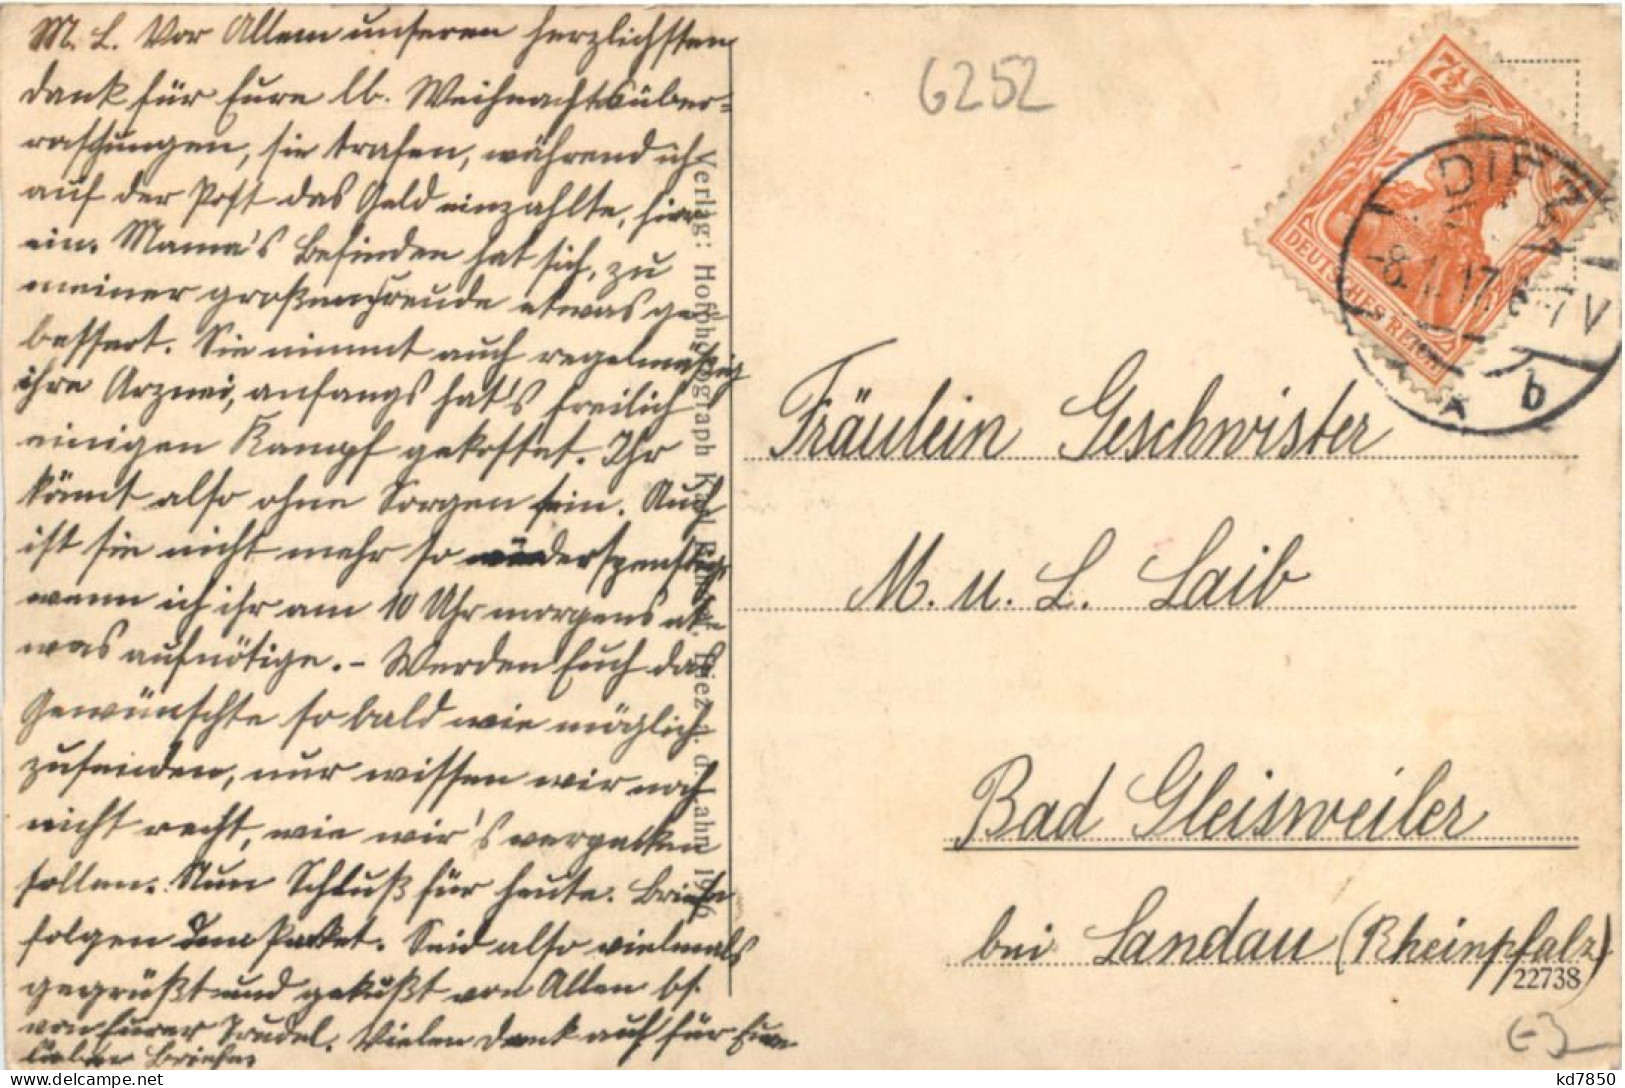 M. L. Vor Allem unseren herzlichsten
Dank für Eure lb. Weihnachtsüber-
raschungen, sie trafen, während ich
auf der Post das Geld einzahlte, hier
ein. Mama's Befinden hat sich, zu
meiner großen Freude etwas ge-
bessert. Sie nimmt auch regelmäßig
ihre Arznei, anfangs hat's freilich
einigen Kampf gekostet. Ihr
könnt also ohne Sorgen sein. Auch
ist sie nicht mehr so widerspenstig,
wenn ich ihr am 10 Uhr morgens et-
was aufnötige. - Werden Euch das
Gewünschte so bald wie möglich
zusenden, nur wissen wir noch
nicht recht, wie wir's verpacken
sollen. Nun Schluß für heute. Briefe
folgen dem Packet. Seid also vielmals
gegrüßt und geküßt von Allen bs.
von Eurer Trudel. Vielen Dank auch für Eure
lieben Briefe
Verlag: Hofphotograph Diez a. d. Lahn 1916
6252
7½
DEUTSCHES REICH
DIEZ
-8.1.17. 6-7 V
b
Fräulein Geschwister
M. u. L. Laib
Bad Gleisweiler
bei Landau (Rheinpfalz)
22738
kd7850